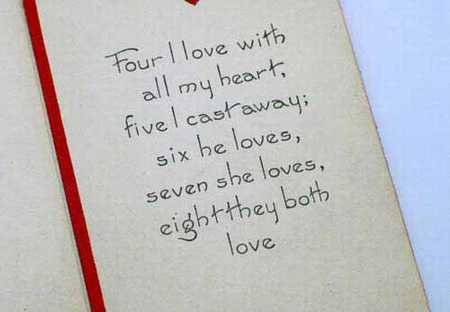 Four I love with
all my heart,
five I cast away;
six he loves,
seven she loves,
eight they both
love